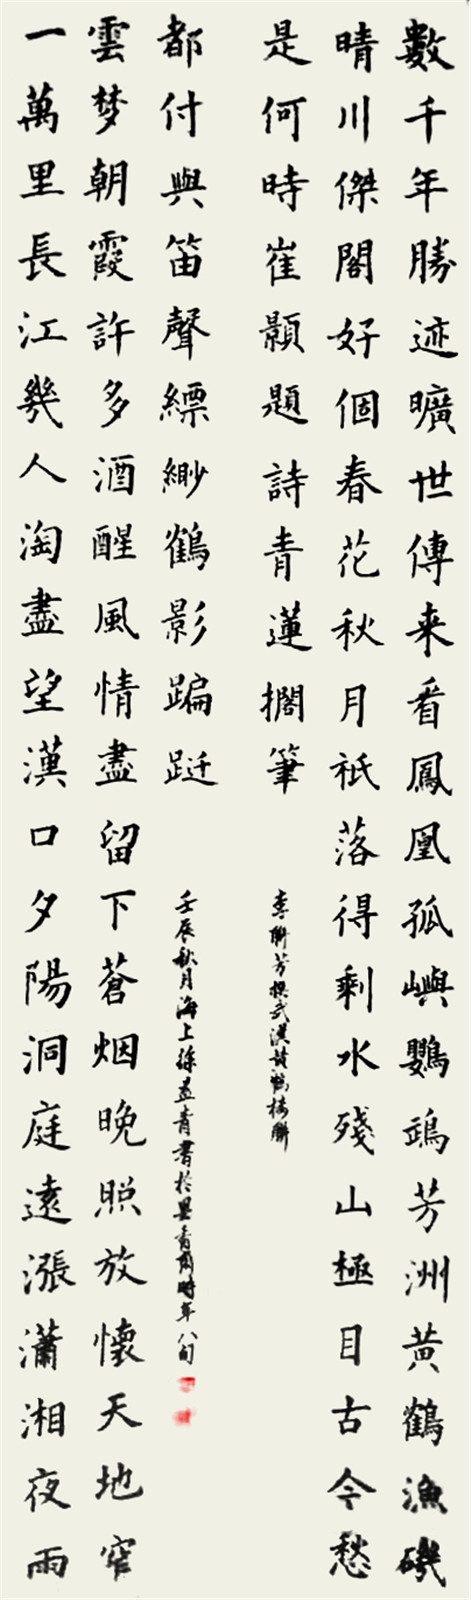 數千年勝迹曠世傳来看鳳凰孤嶼鸚鵡芳洲黄鶴漁磯
晴川傑閣好個春花秋月祇落得剩水殘山極目古今愁
是何時崔顥題詩青蓮擱筆
李聯芳撰武漢黄鶴樓聯
一萬里長江幾人淘盡望漢口夕陽洞庭遠漲瀟湘夜雨
雲梦朝霞許多酒醒風情盡留下蒼烟晚照放懷天地窄
都付與笛聲縹緲鶴影蹁跹
壬辰秋月海上徐青書於墨香閣時年八旬